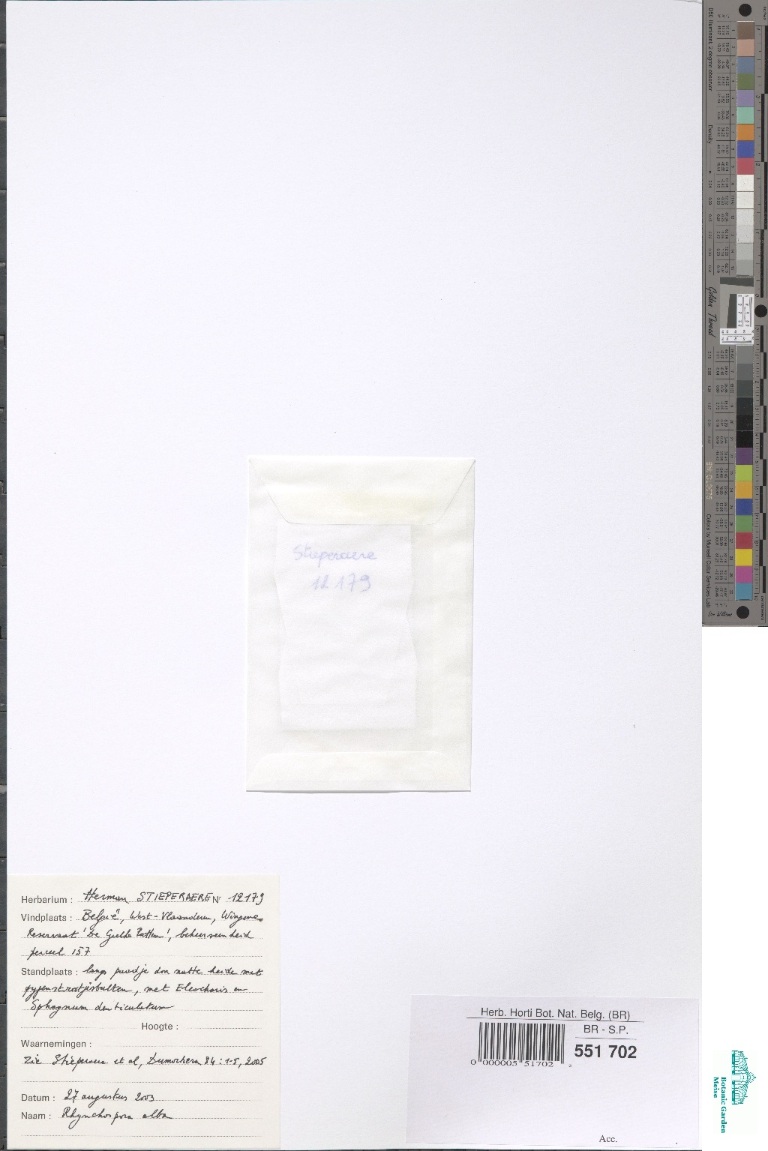 Stieperaere
12179
Herbarium : Herman STIEPERAERE Nr 12179
Vindplaats : België, West-Vlaanderen, Wingene
Reservaat 'De Gulke Putten', beheerseenheid
perceel 157
Standplaats : langs paadje door natte heide met
pijpenstrootjesbulten, met Eleocharis en
Sphagnum denticulatum
Hoogte :
Waarnemingen :
Zie Stieperaere et al, Dumortiera 84 : 1-5, 2005
Datum : 27 augustus 2003
Naam : Rhynchospora alba
Herb. Horti Bot. Nat. Belg. (BR)
BR - S.P.
551 702
0 000005 51702
Acc.
Golden Thread
Botanic Garden
Meise